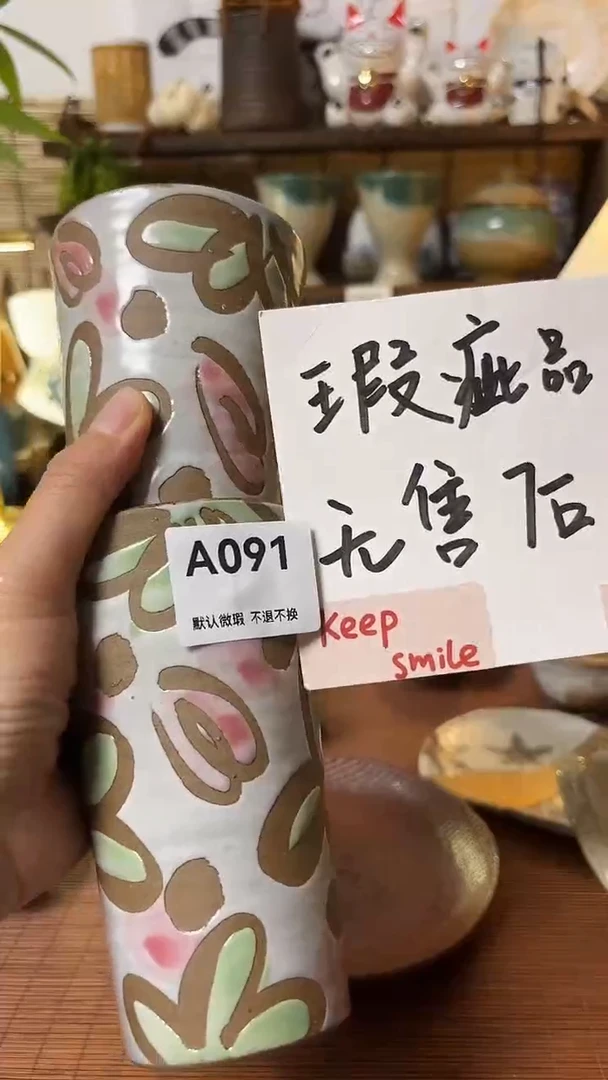 瑕疵品
无售后
Keep
smile
A091
默认微瑕 不退不换